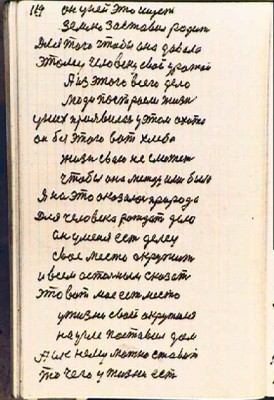 119 он у ней это ищет
землю заставил родит
Для того чтобы она давала
этому человеку свой урожай
А из этого всего дело
Люди построили жизнь
у них появилась у этом охота
он бэз этого вот хлеба
жизнь свою не сможет
чтобы она между ими была
Я на это сказал природа
Для человека рождает дело
он у меня ест делец
свое место окружит
и всем остальным сказат
это вот мое ест место
у жизни свой окружил
на угле поставил дом
А к нему можно ставит
то чего у жизни ест